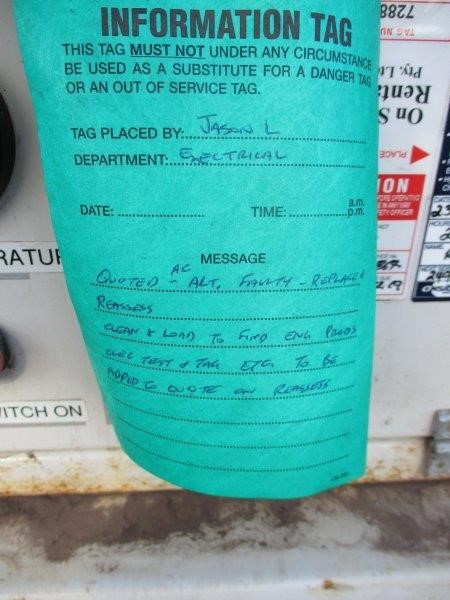 INFORMATION TAG
THIS TAG MUST NOT UNDER ANY CIRCUMSTANCE
BE USED AS A SUBSTITUTE FOR A DANGER TAG
OR AN OUT OF SERVICE TAG.
TAG PLACED BY: JASON L
DEPARTMENT: ELECTRICAL
DATE: TIME: a.m.
p.m.
MESSAGE
QUOTED - AC ALT. FAULTY - REPLACE &
REASSESS
CLEAN & LOAD TO FIND ENG PROBS
ELEC TEST & TAG ETC TO BE
ADDED TO QUOTE ON REASSESS
RATUR
WITCH ON
7288
TAG NU
Pty. Lt
Renta
On S
PLACE
ION